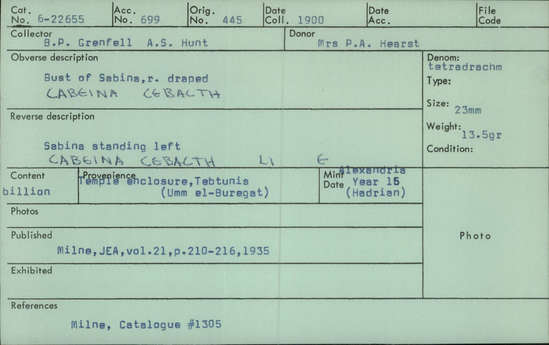 Cat. No. 6-22655 Acc. No. 699 Orig. No. 445 Date Coll. 1900 Date Acc. File Code
Collector Donor
B.P. Grenfell A.S. Hunt Mrs P.A. Hearst
Obverse description Denom:
tetradrachm
Bust of Sabina,r. draped Type:
CABEINA CEBACTH
Size:
23mm
Reverse description
Weight:
13.5gr
Sabina standing left Condition:
CABEINA CEBACTH LI E
Content Provenience Mint Alexandria
billion Temple enclosure,Tebtunis Date Year 15
(Umm el-Buregat) (Hadrian)
Photos
Photo
Published
Milne,JEA,vol.21,p.210-216,1935
Exhibited
References
Milne, Catalogue #1305